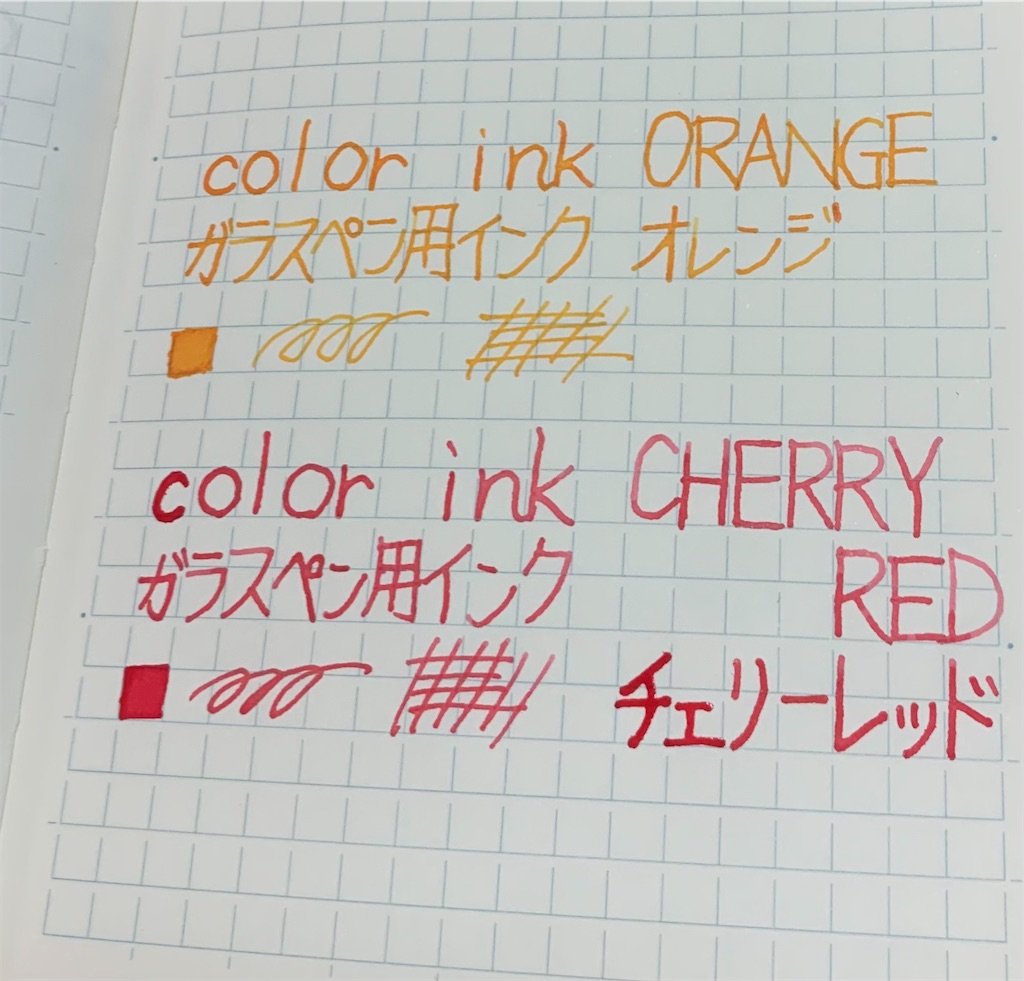 color ink ORANGE
ガラスペン用インク オレンジ
color ink CHERRY
ガラスペン用インク RED
チェリーレッド